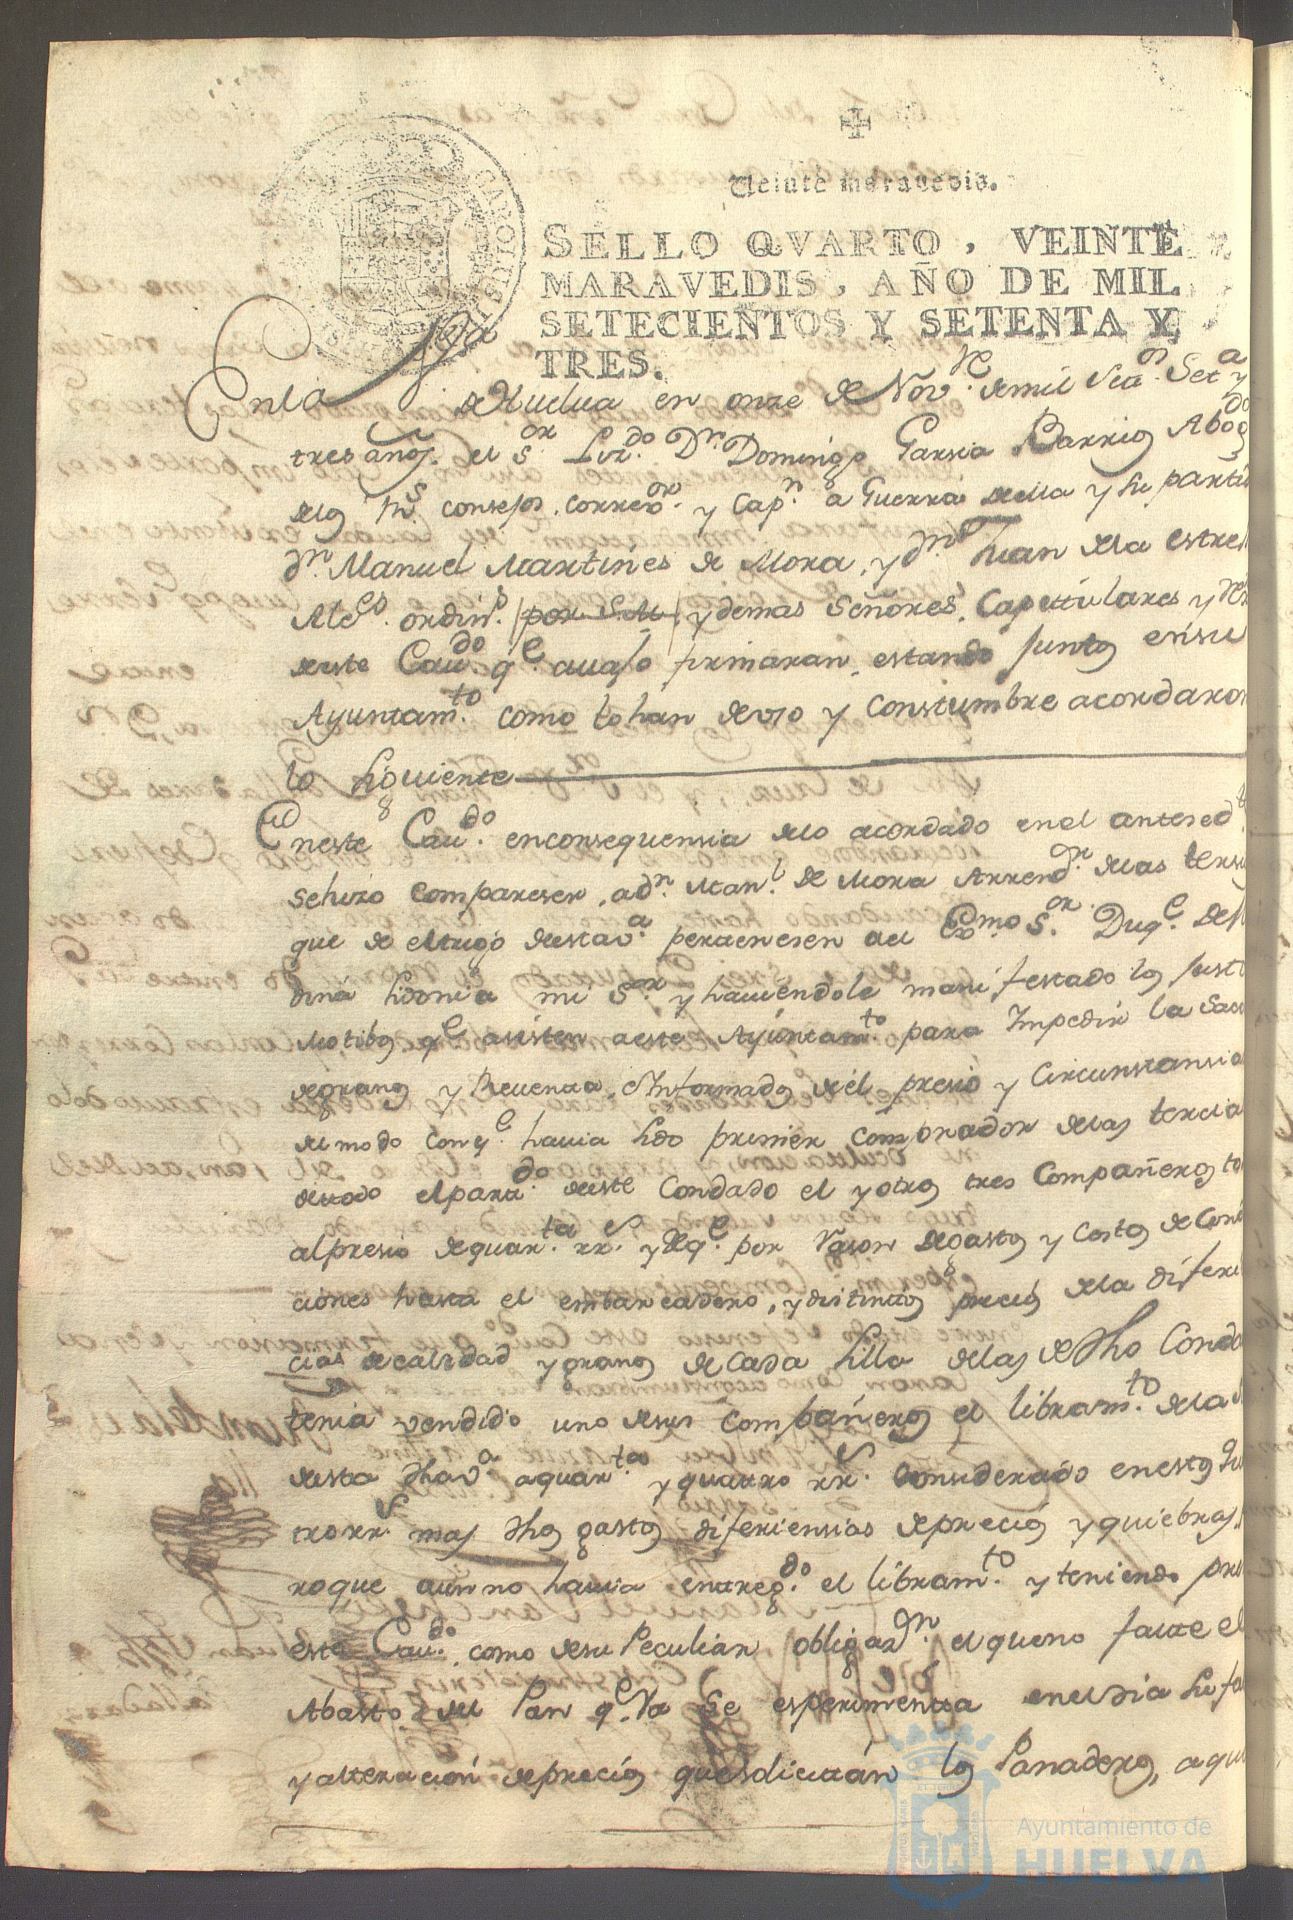 Veinte maravedis.
SELLO QVARTO, VEINTE
MARAVEDIS, AÑO DE MIL
SETECIENTOS Y SETENTA Y
TRES.
En la Va de Huelua en onze de Nove. de mil Settos. Seta y
tres años. el Sor. Lizdo. Dn. Domingo Garsia Barrios Abogdo
de los Rs. consejos, correxor. y Capn. a Guerra de ella y su partido
Dn. Manuel Martines de Mora, y Dn. Juan de la estrella
Alces. ordins. /por S.M/ y demas Señores Capitulares y
de este Caudo. qe. auajo firmaran, estando juntos en su
Ayuntamto. como lo han de vso y Constumbre acordaron
lo siguiente
En este Caudo. en consequensia de lo acordado en el antesedte
se hizo compareser, a Dn. Manl. de Mora Arrendor. de las tersias
que de el trigo de esta va. pertenesen a el Exmo Sor. Duqe. de Me
dina Sidonia mi Sor. y hauiendole manifestado los justos
Motibos qe. asisten a este Ayuntamto. para Impedir la Saca
de granos y Reuenta, e Informados de el presio y Circunstansias
de el modo con qe. hauia sido primer comprador de las tercias
de todo el partdo. de este Condado el y otros tres Compañeros
al presio de quarta. rrs. y de qe. por rason de gastos y Costos de Condu
ciones hasta el embarcadero, y distintos precios de la diferen
cias de calidad y granos de cada Silla de las de dho Condado
tenia vendido uno de sus Compañeros el libramto. de la
de esta dha va. a quarta. y quatro rrs. considerado en estos qua
tro rrs. mas dhos gastos diferiensias de precios y quiebras,
ro que aun no hauia entregdo. el libramto. y teniendo
este Caudo. como de su Peculiar obligazon. el que no falte el
Abasto de el Pan qe. Ya se esperimenta en el dia su falta
y alteracion de precios que solicitan los Panaderos, a
Ayuntamiento de
HUELVA